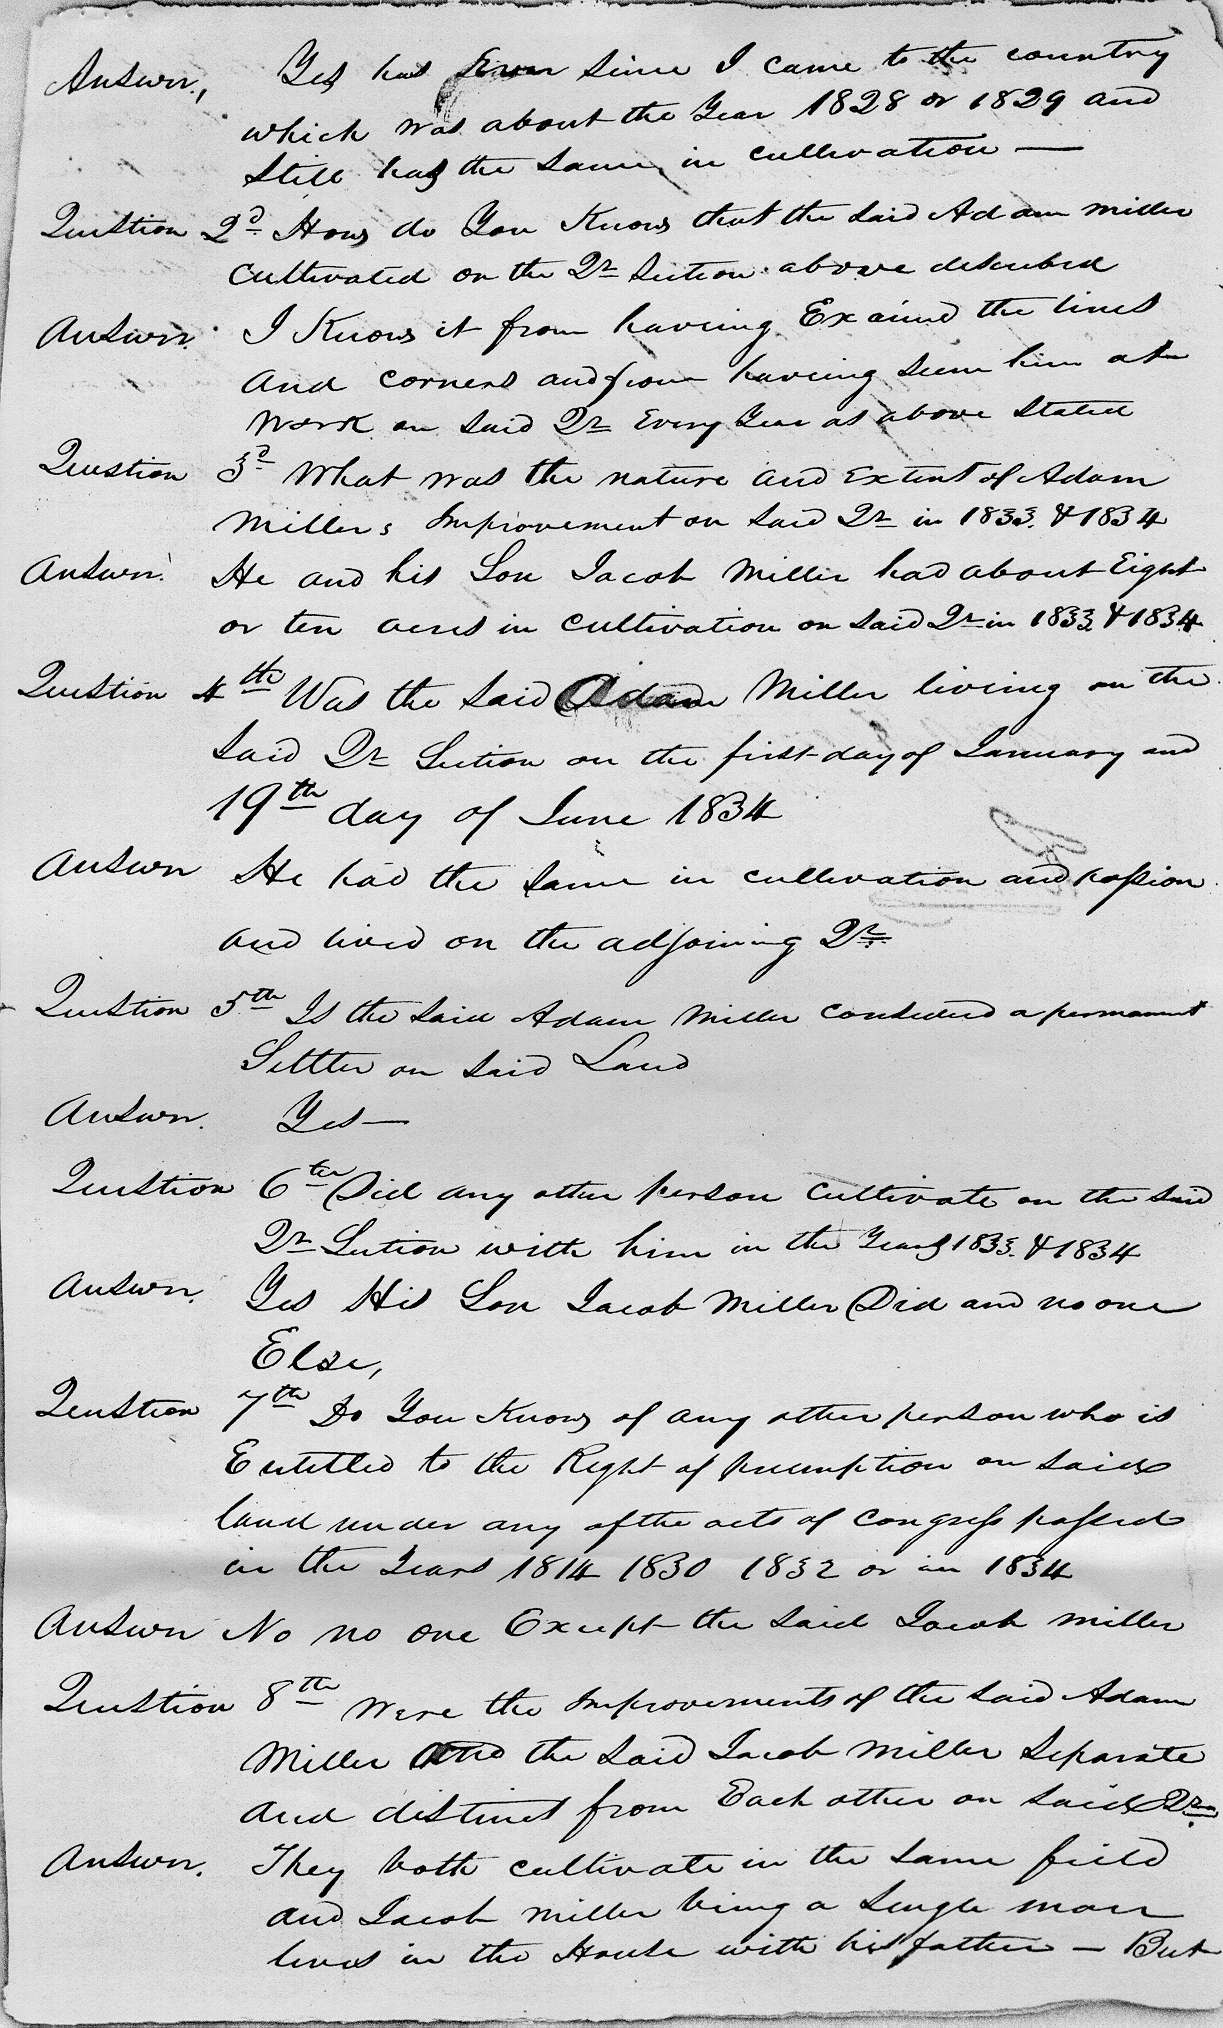 Answer, Yes has Ever since I came to the country
which was about the Year 1828 or 1829 and
still has the same in cultivation —
Question 2d. How do You Know that the said Adam Miller
cultivated on the Qr Section above described
Answer. I Know it from having Exained the lines
and corners and from having seen him at
work on said Qr Every Year as above stated
Question 3d What was the nature and Extent of Adam
Millers Improvement on said Qr in 1833. & 1834
Answer. He and his Son Jacob Miller had about Eight
or ten acres in cultivation on said Qr in 1833 & 1834
Question 4th Was the said Adam Miller living on the
said Qr Section on the first day of January and
19th day of June 1834
Answer He had the same in cultivation and possion
and lived on the adjoining Qr.
Question 5th Is the said Adam Miller considered a permanent
Settler on said Land
Answer. Yes —
Question 6th Did any other person cultivate on the said
Qr Section with him in the Years 1833. & 1834
Answer. Yes His Son Jacob Miller Did and no one
Else,
Question 7th Do You Know of any other person who is
Entitled to the Right of preemption on said
land under any of the acts of Congress passed
in the Years 1814 1830 1832 or in 1834
Answer No no one Except the said Jacob Miller
Question 8th Were the Improvements of the said Adam
Miller and the said Jacob Miller Separate
and distinct from Each other on said Qr.
Answer. They both cultivate in the same field
and Jacob Miller being a Single man
lives in the House with his father — But